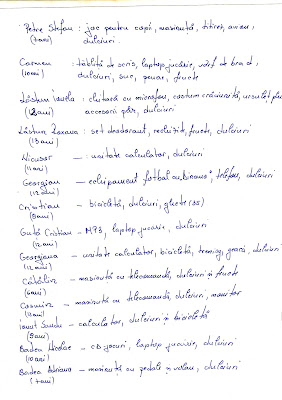 Petre Ștefan : joc pentru copii, mașinuță, titirez, avion,
(7 ani) dulciuri.
Carmen – tăbliță de scris, laptop jucărie, vârf de brad,
(10 ani) dulciuri, suc, penar, fructe
Lăstun Ionela – chitară cu microfon, costum crăciuniță, ursuleț pluș
(12 ani) accesorii păr, dulciuri
Lăstun Roxana : set deodorant, rechizite, fructe, dulciuri
(13 ani)
Nicușor – unitate calculator, dulciuri
(11 ani)
Georgian – echipament fotbal telefon, dulciuri
(12 ani)
Cristian – bicicletă, dulciuri, ghete (35)
(9 ani)
Guță Cristian – MP3, laptop jucărie, dulciuri
(12 ani)
Georgiana – unitate calculator, bicicletă, trening, geacă, dulciuri
(12 ani)
Cătălin – mașinuță cu telecomandă, dulciuri și fructe
(6 ani)
Cosmin – mașinuță cu telecomandă, dulciuri, monitor
(11 ani)
Ionuț Sandu – calculator, dulciuri și bicicletă
(9 ani)
Badea Nicolae – CD jocuri, laptop jucărie, dulciuri
(10 ani)
Badea Adriana – mașinuță cu pedale și volan, dulciuri
(7 ani)